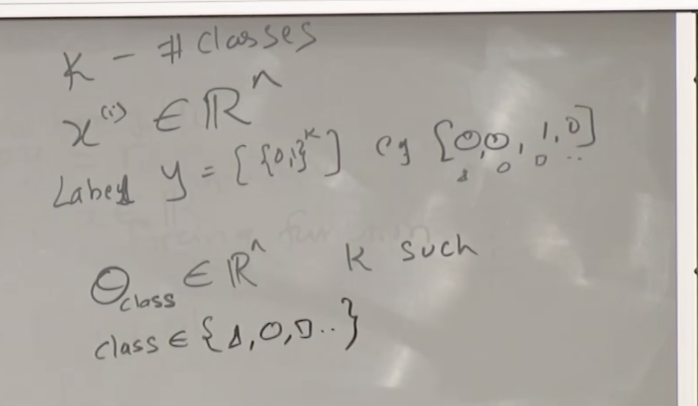 K - # Classes
x⁽ⁱ⁾ ∈ ℝⁿ
Label y = [ {0,1}ᴷ ] eg [0,0,1,0]
△ ○ □ ..
Θ_class ∈ ℝⁿ K such
class ∈ {△, ○, □ ..}